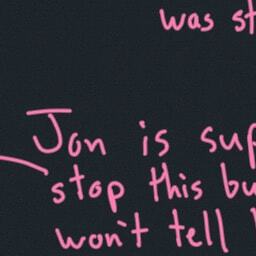 was st
Jon is sup
stop this bu
won't tell